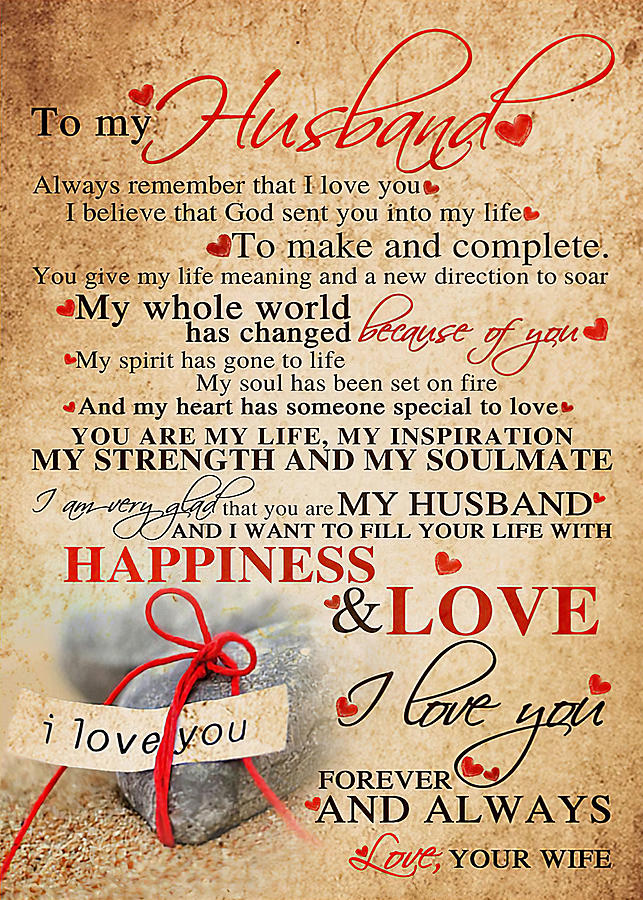 To my Husband
Always remember that I love you
I believe that God sent you into my life
To make and complete.
You give my life meaning and a new direction to soar
My whole world
has changed because of you
My spirit has gone to life
My soul has been set on fire
And my heart has someone special to love
YOU ARE MY LIFE, MY INSPIRATION
MY STRENGTH AND MY SOULMATE
I am very glad that you are MY HUSBAND
AND I WANT TO FILL YOUR LIFE WITH
HAPPINESS
& LOVE
I love you
i love you
FOREVER
AND ALWAYS
Love, YOUR WIFE